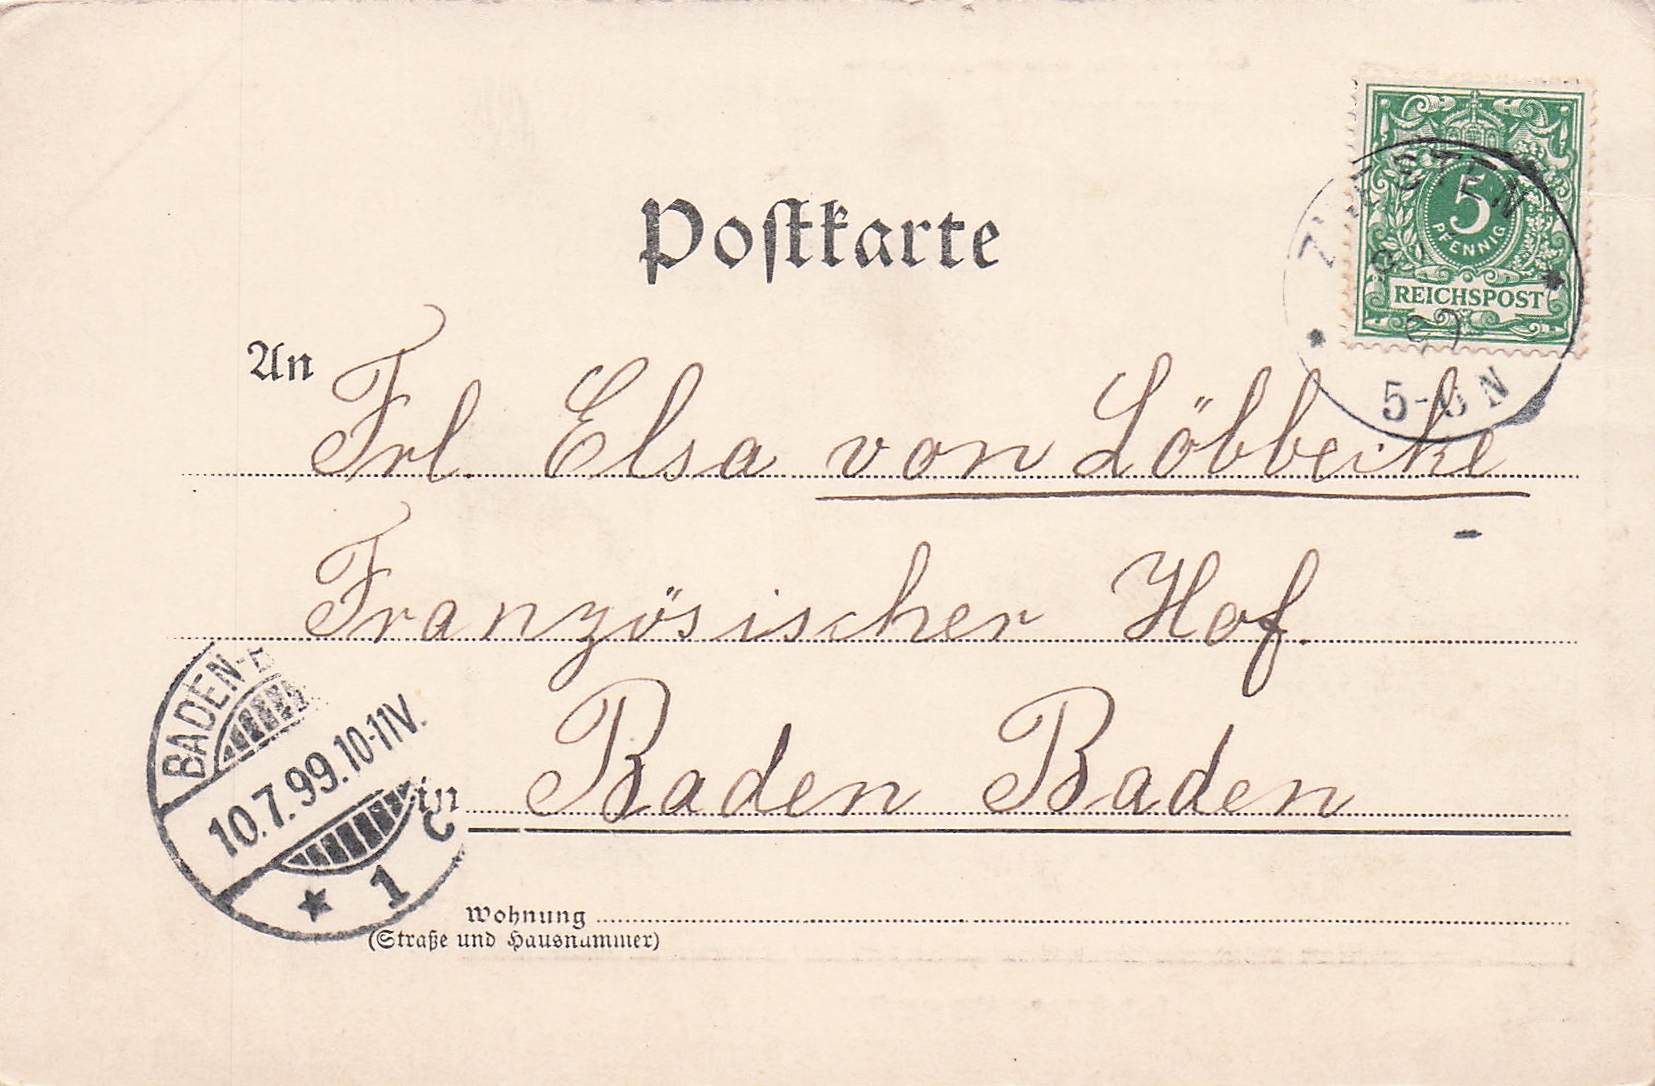 Postkarte
5
PFENNIG
REICHSPOST
5-6 N
An Frl. Elsa von Löbbecke
Französischer Hof.
Baden Baden
BADEN-B
10.7.99.10-11V.
* 1 c
Wohnung
(Straße und Hausnummer)